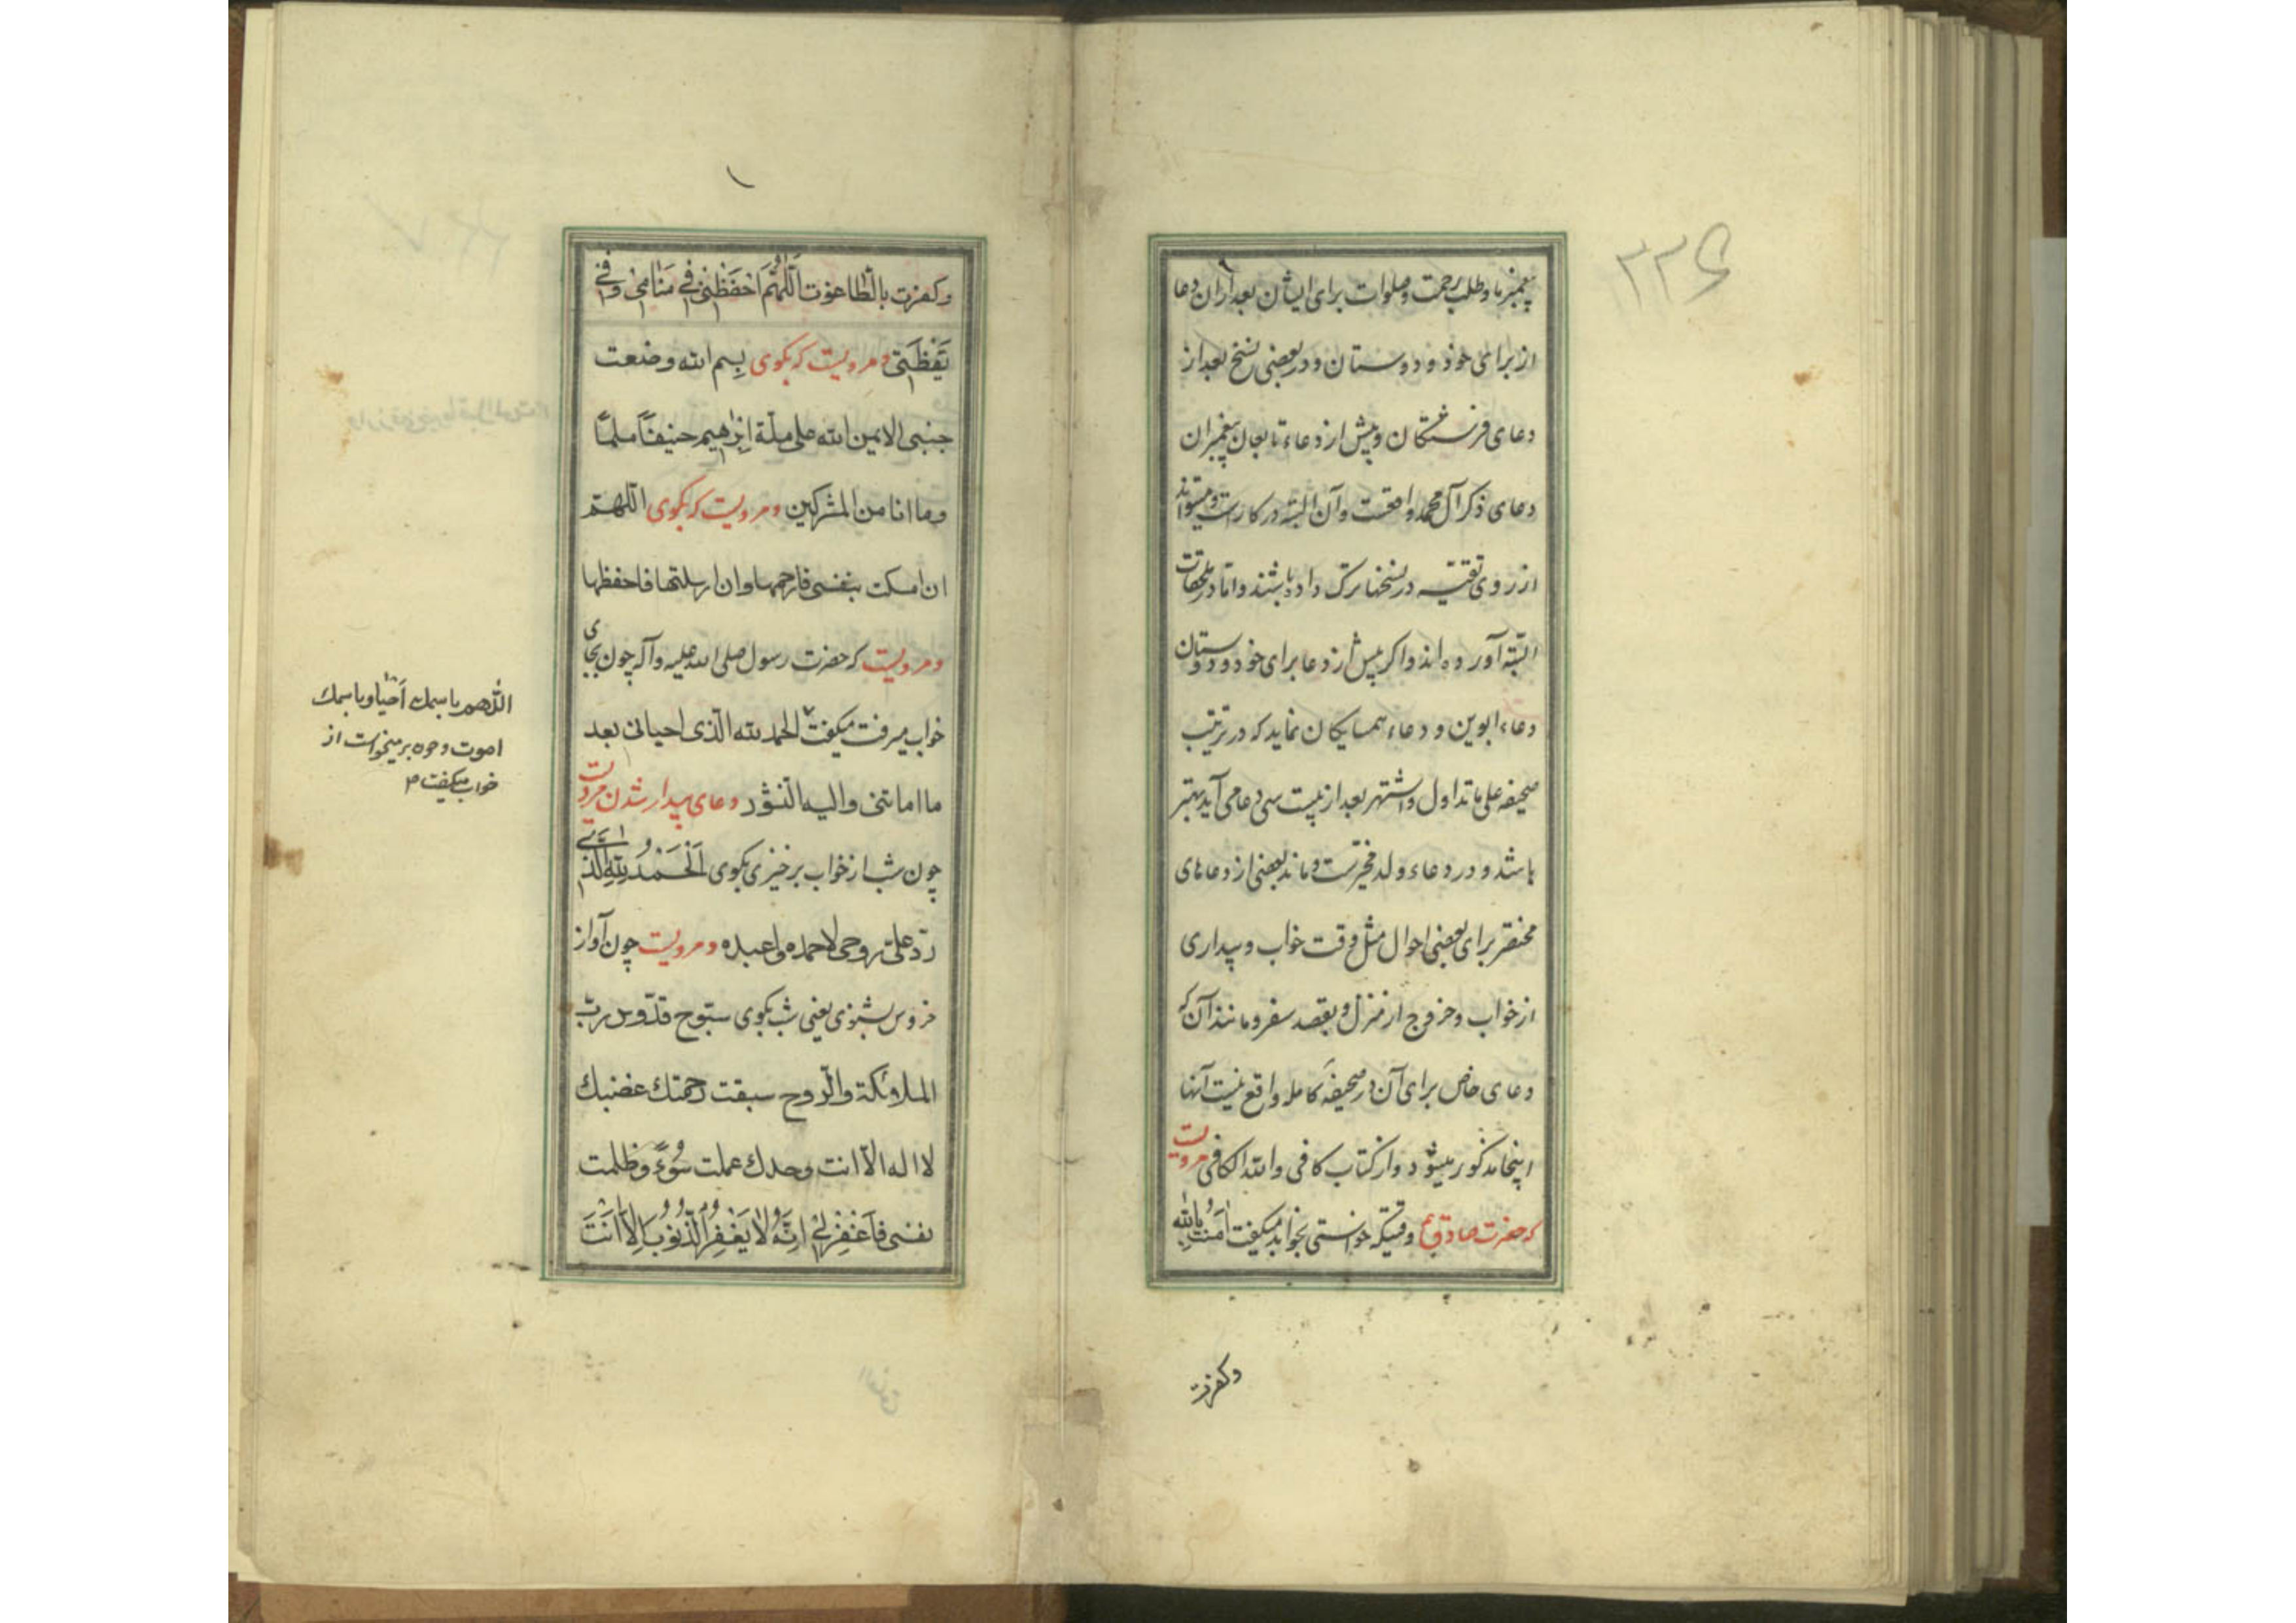 ۲۲۶
پیغمبر ما و طلب رحمت و صلوات برای ایشان بعد از آن دعا
از برای خود و دوستان و در بعضی نسخ بعد از
دعای فرشتگان و پیش از دعاء تابعان پیغمبران
دعای ذکر آل محمد واقعست و آن البته در کارست و میتواند
از روی تقیّه در نسخها ترک داده باشند و امّا در ملحقات
البته آورده‌اند و اگر پیش از دعا برای خود و دوستان
دعاء ابوین و دعاء همسایکان نماید که در ترتیب
صحیفه علی ما تداول و اشتهر بعد از بیست سی دعا می آید بهتر
باشد و در دعاء ولد مخیّرست و ماند بعضی از دعاهای
مختصر برای بعضی احوال مثل وقت خواب و بیداری
از خواب و خروج از منزل و بقصد سفر و مانند آن که
دعای خاص برای آن در صحیفهٔ کامله واقع نیست آنها
اینجا مذکور میشود و از کتاب کافی و الله الکافی مرویست
که حضرت صادق ع وقتیکه خواستی بخوابد میکفت اٰمَنْتُ بِاللّٰهِ
وکفرت
وکفرت بالطّاغوت اَللّٰهُمَّ احْفَظْنِی فِی مَنَامِی وَ فِی
یَقْظَتِی و مرویست که بکوی بِسم الله وضعت
جنبی الایمن لله علی ملّة اِبْرٰهیم حنیفًا مسلمًا
وما انا من المشرکین و مرویست که بکوی اللّهمّ
ان امسکت بنفسی فارحمها وان ارسلتها فاحفظها
و مرویست که حضرت رسول صلی الله علیه و آله چون بجای
خواب میرفت میکفت الحمد لله الّذی احیانی بعد
ما اماتنی والیه النّشور دعای بیدار شدن مرویست
چون شب از خواب برخیزی بکوی اَلْحَمْدُ لِلّٰهِ الَّذِی
ردّ علیّ روحی لاحمده واعبده و مرویست چون آواز
خروس بشنوی یعنی شب بکوی سبّوح قدّوس ربّ
الملائکة والرّوح سبقت رحمتك غضبك
لا اله الّا انت وحدك عملت سُوءً وظلمت
نفسی فَاغْفِرْ لِی اِنَّهُ لَا یَغْفِرُ الذُّنُوبَ اِلَّا اَنْتَ
اللّهم باسمك اَحْیا وباسمك
اموت و چون برمیخواست از
خواب میکفت